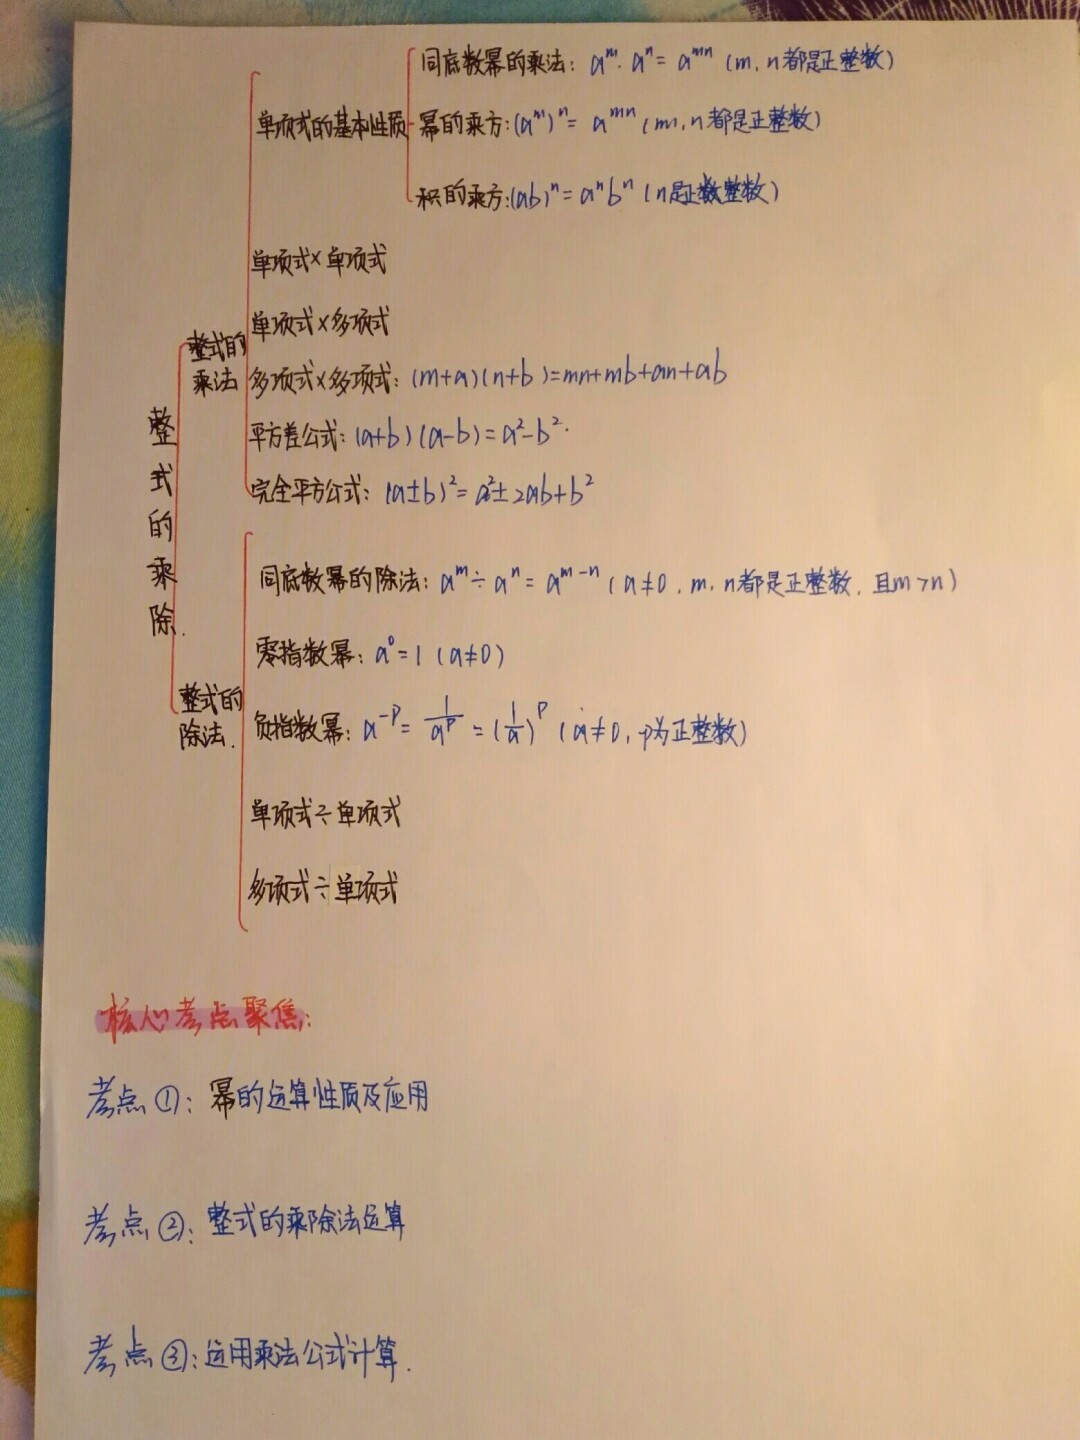 同底数幂的乘法: aᵐ·aⁿ=aᵐⁿ (m, n都是正整数)
单项式的基本性质
幂的乘方: (aᵐ)ⁿ=aᵐⁿ (m, n都是正整数)
积的乘方: (ab)ⁿ=aⁿbⁿ (n是正整数)
单项式×单项式
单项式×多项式
整式的
乘法
多项式×多项式: (m+a)(n+b)=mn+mb+an+ab
平方差公式: (a+b)(a-b)=a²-b².
完全平方公式: (a±b)²=a²±2ab+b²
整式的乘除.
同底数幂的除法: aᵐ÷aⁿ=aᵐ⁻ⁿ (a≠0, m, n都是正整数, 且m>n)
零指数幂: a⁰=1 (a≠0)
整式的
除法.
负指数幂: a⁻ᵖ=1/aᵖ=(1/a)ᵖ (a≠0, p为正整数)
单项式÷单项式
多项式÷单项式
核心考点聚焦:
考点①: 幂的运算性质及应用
考点②: 整式的乘除法运算
考点③: 运用乘法公式计算.